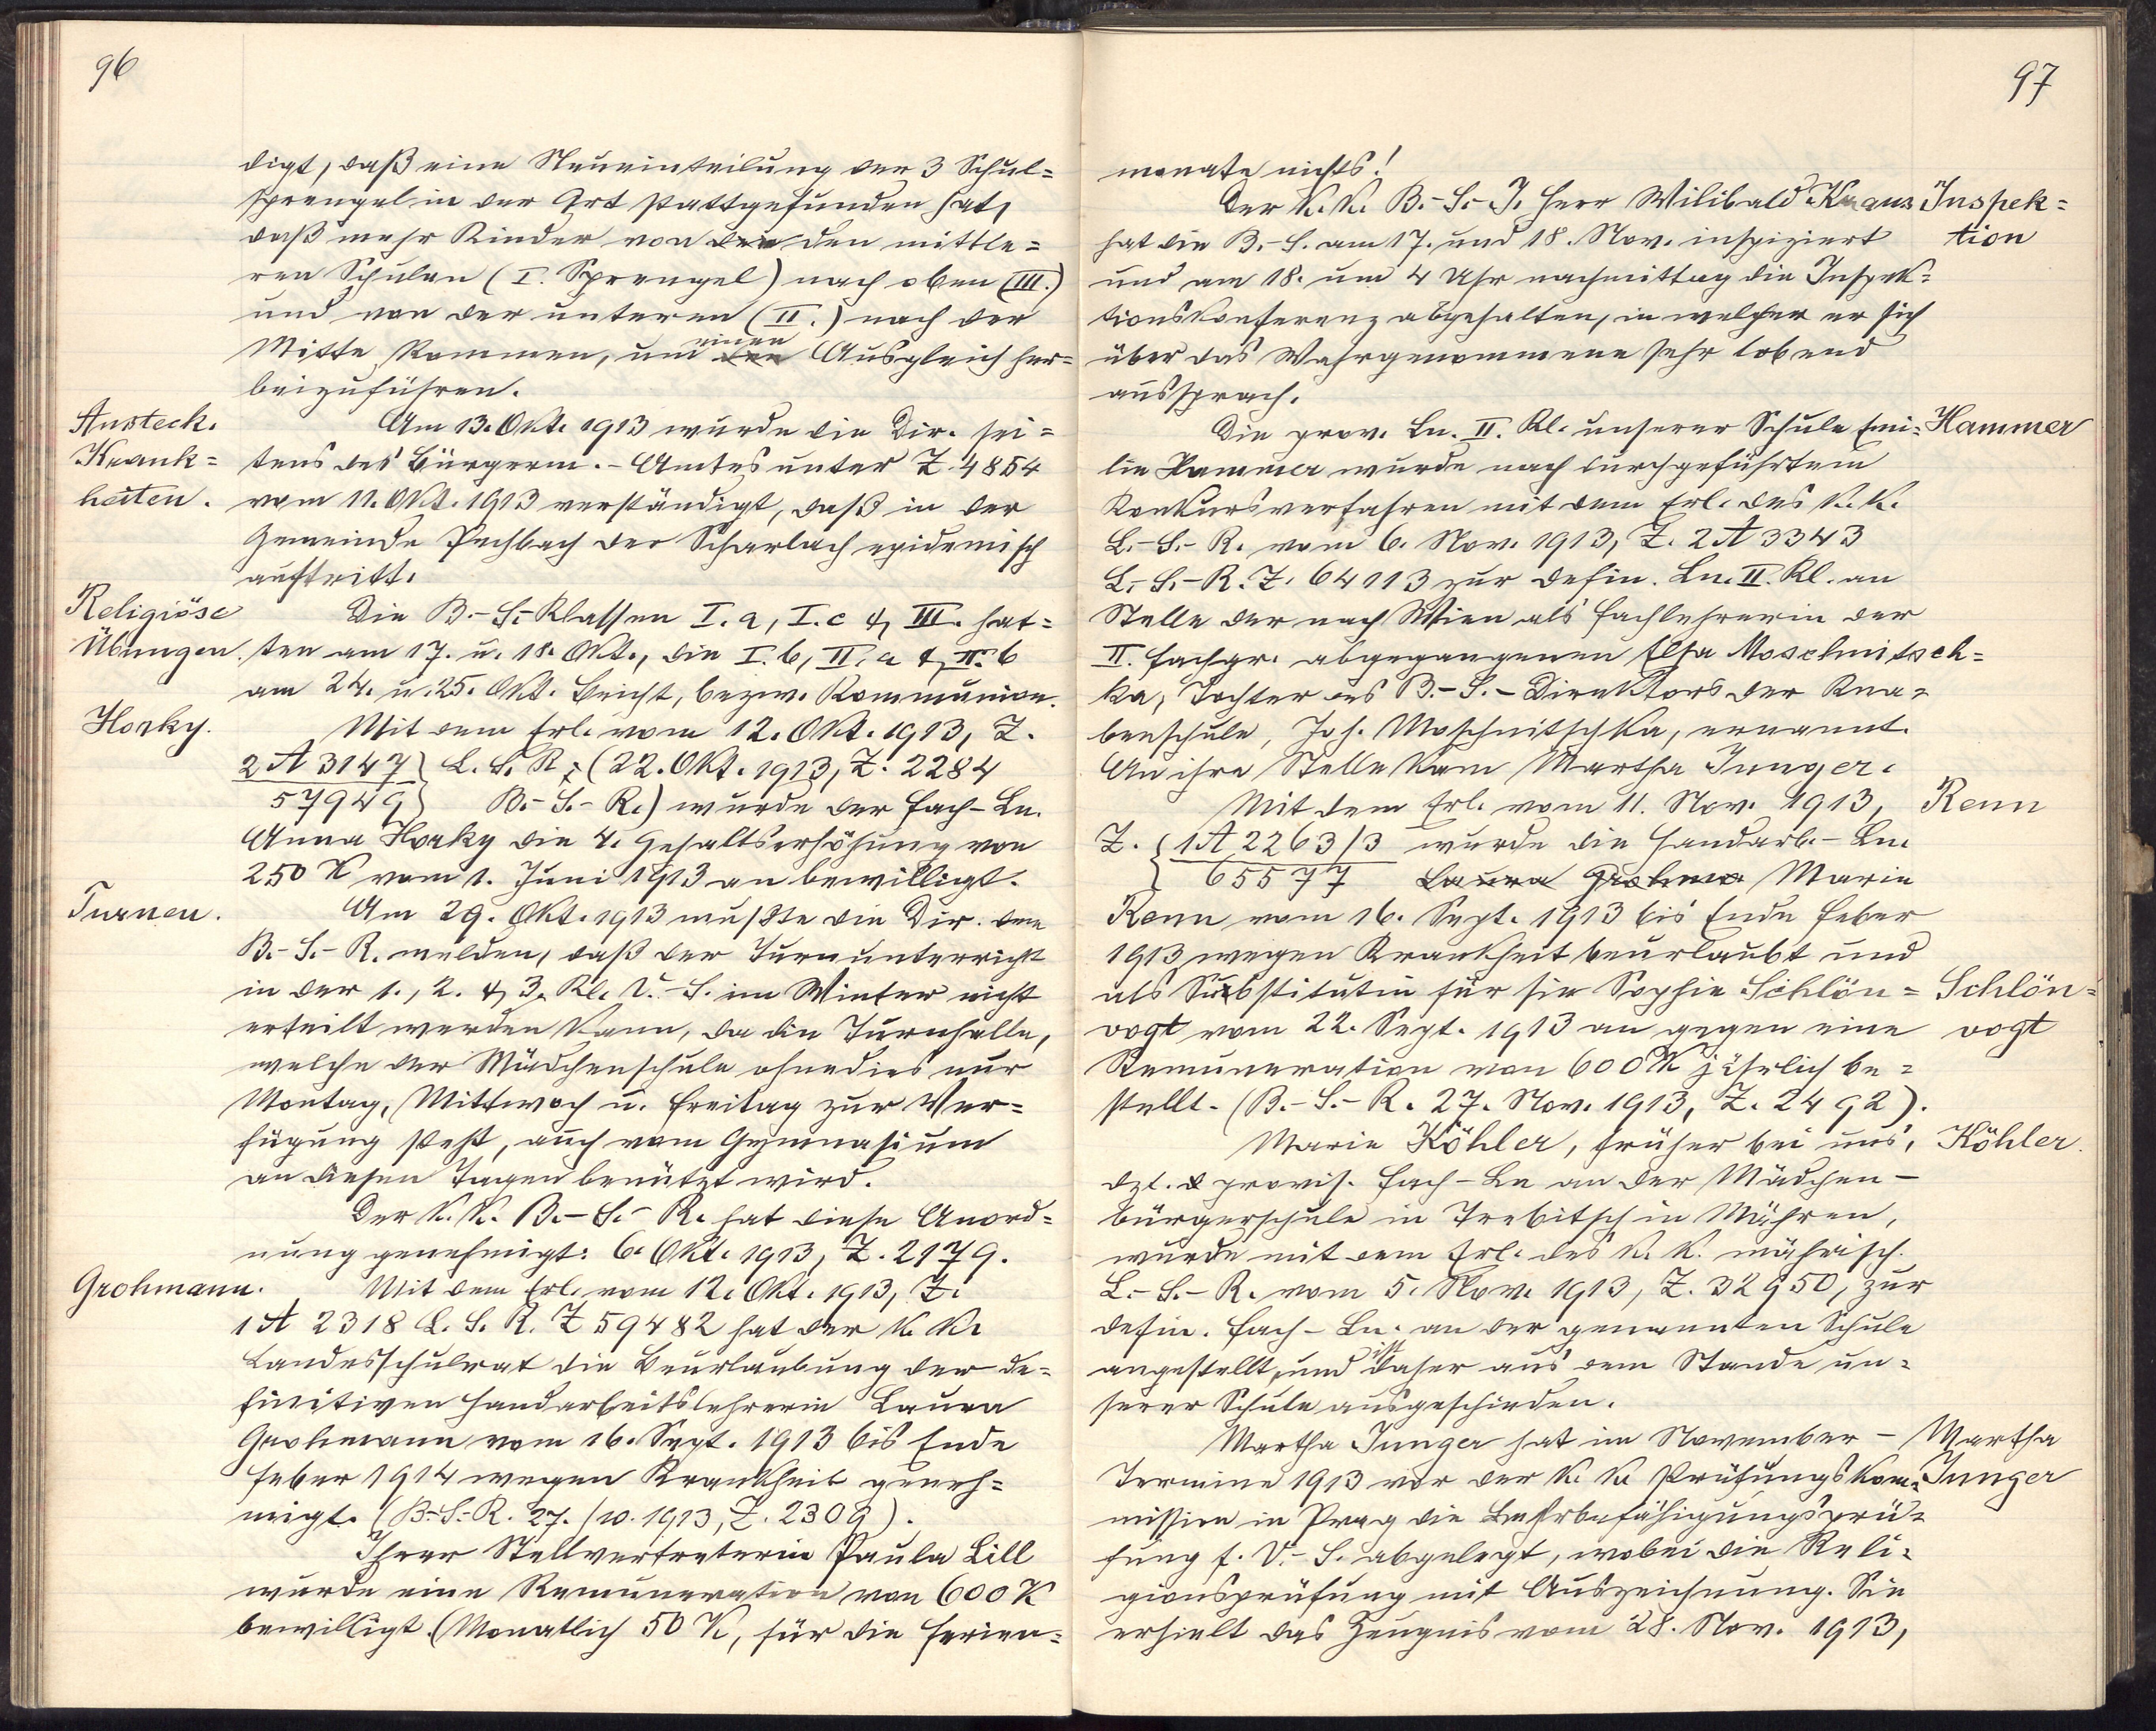 96
digt, daß eine Neueinteilung der 3 Schul=
sprengel in der Art stattgefunden hat,
daß mehr Kinder von der den mittle=
ren Schulen (I. Sprengel) nach oben (III.)
und von der unteren (II.) nach der
Mitte kommen, um den einen Ausgleich her=
beizuführen.
Ansteck.
Krank=
heiten.
Am 13. Okt. 1913 wurde die Dir. sei=
tens des Bürgerm.-Amtes unter Z. 4854
vom 11. Okt. 1913 verständigt, daß in der
Gemeinde Pechbach der Scharlach epidemisch
auftritt.
Religiöse
Übungen.
Die B.-S.-Klassen I. a, I. c & III. hat=
ten am 17. u. 18. Okt., die I. b, II. a & II. b
am 24. u. 25. Okt. Beicht, bezw. Kommunion.
Horky.
Mit dem Erl. vom 12. Okt. 1913, Z.
2 A 3147 } L. S. R. (22. Okt. 1913, Z. 2284
57949 } B.-S.-R.) wurde der Fach-Ln.
Anna Horky die 4. Gehaltserhöhung von
250 K vom 1. Juni 1913 an bewilligt.
Turnen.
Am 29. Okt. 1913 mußte die Dir. dem
B.-S.-R. melden, daß der Turnunterricht
in der 1., 2. & 3. Kl. V.-S. im Winter nicht
erteilt werden kann, da die Turnhalle,
welche der Mädchenschule ohnedies nur
Montag, Mittwoch u. Freitag zur Ver=
fügung steht, auch vom Gymnasium
an diesen Tagen benützt wird.
Der k. k. B.-S.-R. hat diese Anord=
nung genehmigt: 6. Okt. 1913, Z. 2179.
Grohmann.
Mit dem Erl. vom 12. Okt. 1913, Z.
1 A 2318 L. S. R. Z 59482 hat der k. k.
Landesschulrat die Beurlaubung der de=
finitiven Handarbeitslehrerin Laura
Grohmann vom 16. Sept. 1913 bis Ende
Feber 1914 wegen Krankheit geneh=
migt. (B.-S.-R. 27./10. 1913, Z. 2309).
Ihrer Stellvertreterin Paula Lill
wurde eine Remuneration von 600 K
bewilligt. (Monatlich 50 K, für die Ferien=
97
monate nichts!
Inspek=
tion
Der k. k. B.-S.-I. Herr Wilibald Kraus
hat die B.-S. am 17. und 18. Nov. inspiziert
und am 18. um 4 Uhr nachmittag die Inspek=
tionskonferenz abgehalten, in welcher er sich
über das Wahrgenommene sehr lobend
aussprach.
Hammer
Die prov. Ln. II. Kl. unserer Schule Emi=
lie Hammer wurde nach durchgeführtem
Konkursverfahren mit dem Erl. des k. k.
L.-S.-R. vom 6. Nov. 1913, Z. 2 A 3343
L.-S.-R. Z. 64113 zur defin. Ln. II. Kl. an
Stelle der nach Wien als Fachlehrerin der
II. Fachgr. abgegangenen Elsa Moschnitsch=
ka, Tochter des B.-S.-Direktors der Kna=
benschule, Joh. Moschnitschka, ernannt.
An ihre Stelle kam Martha Junger.
Renn
Mit dem Erl. vom 11. Nov. 1913,
Z. { 1 A 2263/3 wurde die Handarb.-Ln.
{ 65577 Laura Grohma Marie
Renn vom 16. Sept. 1913 bis Ende Feber
1913 wegen Krankheit beurlaubt und
Schlön=
vogt
als Substitutin für sie Sophie Schlön=
vogt vom 22. Sept. 1913 an gegen eine
Remuneration von 600 K jährlich be=
stellt. (B.-S.-R. 27. Nov. 1913, Z. 2492).
Köhler.
Marie Köhler, früher bei uns,
dzt. provis. Fach-Ln an der Mädchen-
bürgerschule in Trebitsch in Mähren,
wurde mit dem Erl. des k. k. mährisch.
L.-S.-R. vom 5. Nov. 1913, Z. 32950, zur
defin. Fach-Ln. an der genannten Schule
angestellt, und ist daher aus dem Stande un=
serer Schule ausgeschieden.
Martha
Junger
Martha Junger hat im November-
Termine 1913 vor der k. k. Prüfungskom=
mission in Prag die Lehrbefähigungsprü=
fung f. V.-S. abgelegt, wobei die Reli=
gionsprüfung mit Auszeichnung. Sie
erhielt das Zeugnis vom 28. Nov. 1913,